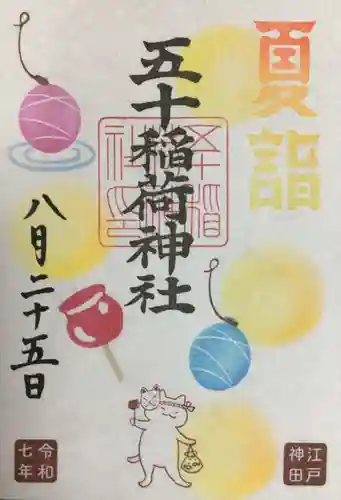 夏詣
五十稲荷神社
八月二十五日
江戸
神田
令和
七年